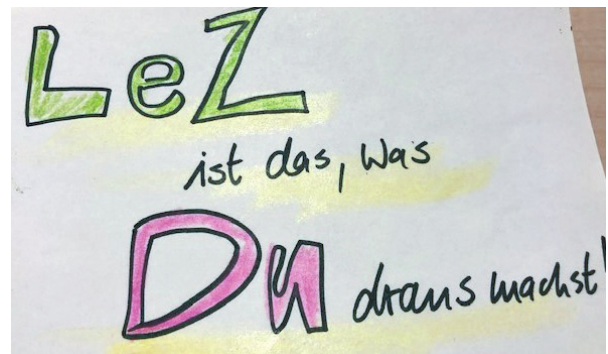 LeZ
ist das, was
Du draus machst!